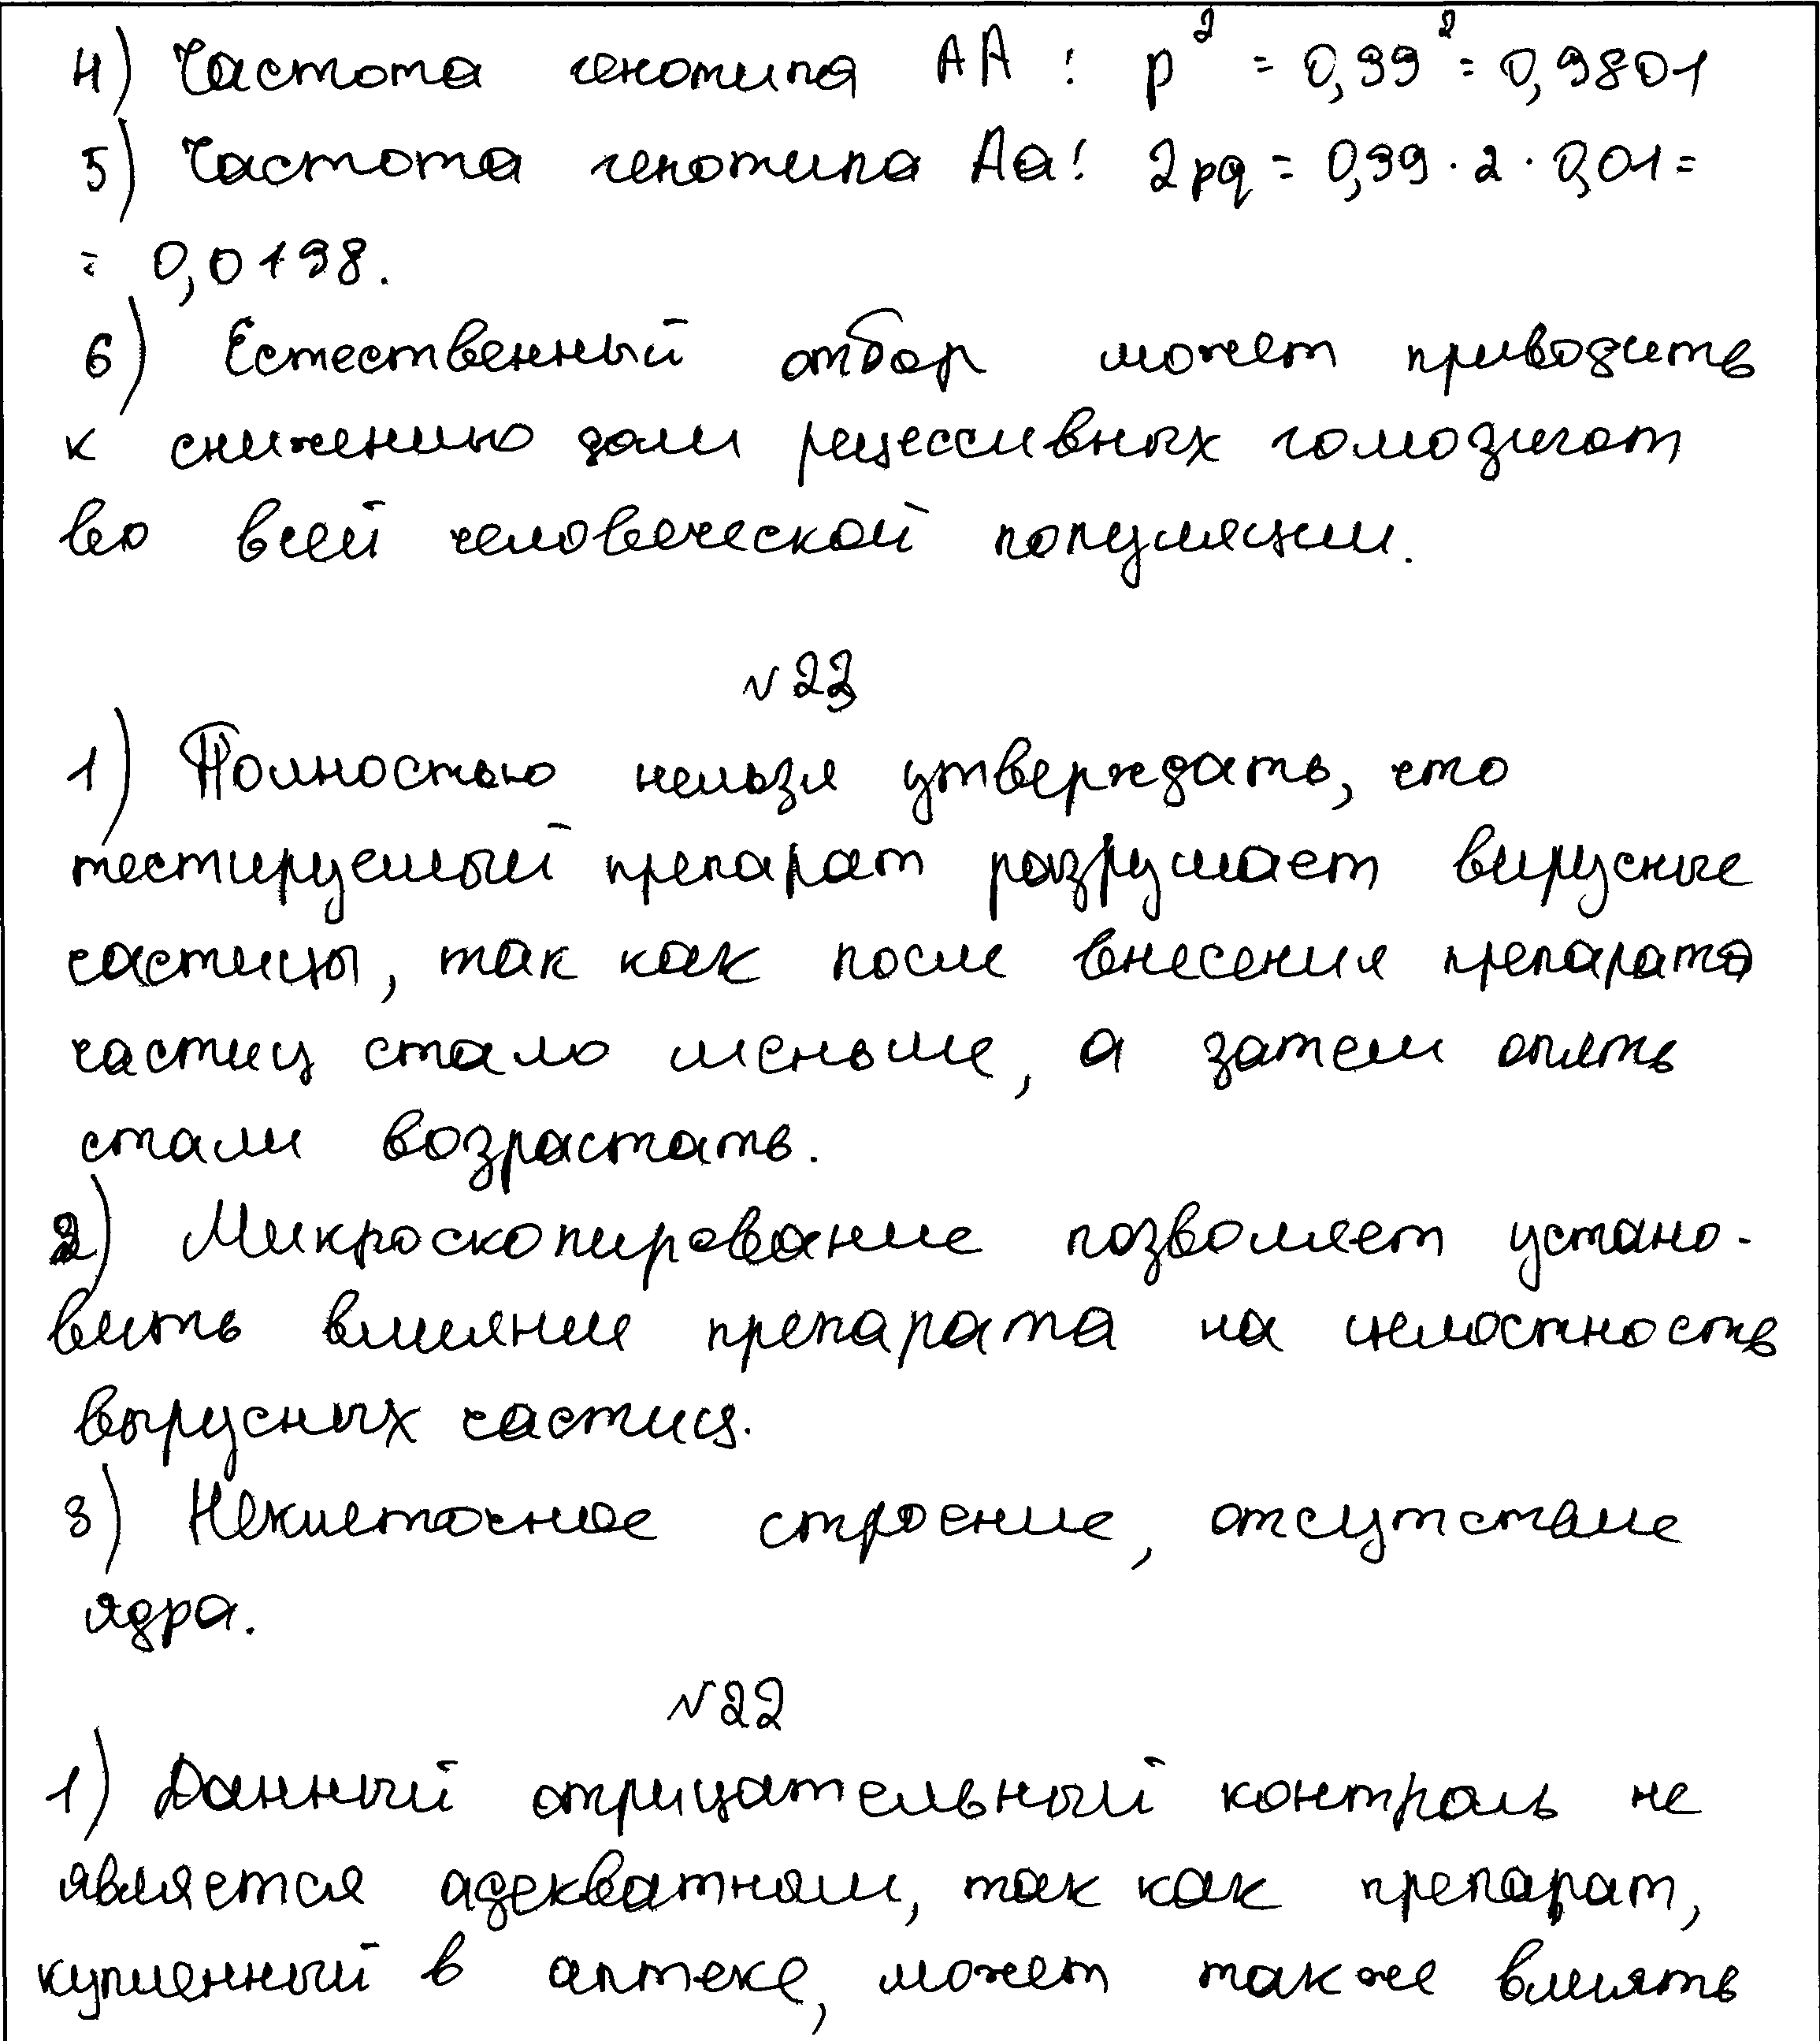 4) Частота генотипа АА: p² = 0,99² = 0,9801
5) Частота генотипа Аа: 2pq = 0,99 · 2 · 0,01 =
= 0,0198.
6) Естественный отбор может приводить
к снижению доли рецессивных гомозигот
во всей человеческой популяции.
№23
1) Полностью нельзя утверждать, что
тестируемый препарат разрушает вирусные
частицы, так как после внесения препарата
частиц стало меньше, а затем опять
стали возрастать.
2) Микроскопирование позволяет устано-
вить влияние препарата на целостность
вырусных частиц.
3) Неклеточное строение, отсутствие
ядра.
№22
1) Данный отрицательный контроль не
является адекватным, так как препарат,
купленный в аптеке, может также влиять